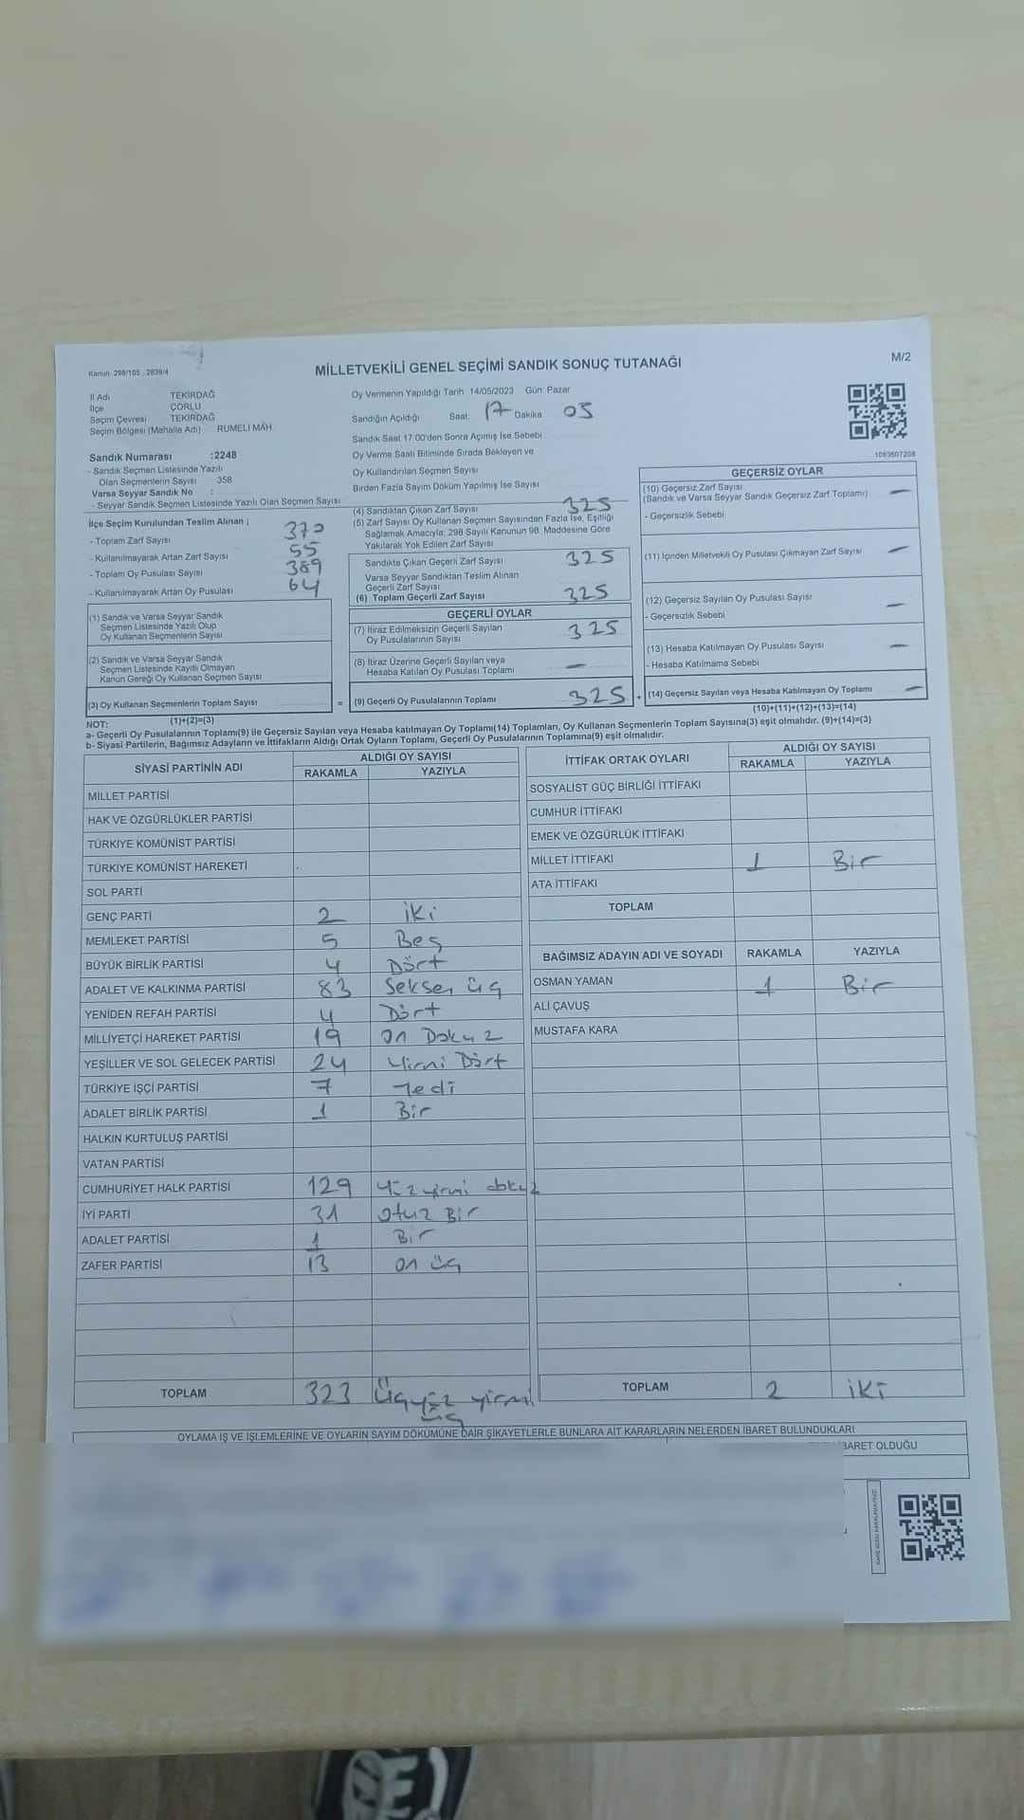 Kanun: 298/105 , 2839/4
MİLLETVEKİLİ GENEL SEÇİMİ SANDIK SONUÇ TUTANAĞI
M/2
İl Adı TEKİRDAĞ
İlçe ÇORLU
Seçim Çevresi TEKİRDAĞ
Seçim Bölgesi (Mahalle Adı) RUMELİ MAH.
Oy Vermenin Yapıldığı Tarih 14/05/2023 Gün: Pazar
Sandığın Açıldığı Saat: 17 Dakika 05
Sandık Saat 17:00'den Sonra Açımış İse Sebebi
Oy Verme Saati Bitiminde Sırada Bekleyen ve
Oy Kullandırılan Seçmen Sayısı
Birden Fazla Sayım Döküm Yapılmış İse Sayısı
1083607208
Sandık Numarası :2248
- Sandık Seçmen Listesinde Yazılı
Olan Seçmenlerin Sayısı 358
Varsa Seyyar Sandık No :
- Seyyar Sandık Seçmen Listesinde Yazılı Olan Seçmen Sayısı
İlçe Seçim Kurulundan Teslim Alınan ;
- Toplam Zarf Sayısı 370
- Kullanılmayarak Artan Zarf Sayısı 55
- Toplam Oy Pusulası Sayısı 389
- Kullanılmayarak Artan Oy Pusulası 64
(1) Sandık ve Varsa Seyyar Sandık
Seçmen Listesinde Yazılı Olup
Oy Kullanan Seçmenlerin Sayısı
(2) Sandık ve Varsa Seyyar Sandık
Seçmen Listesinde Kayıtlı Olmayan
Kanun Gereği Oy Kullanan Seçmen Sayısı
(3) Oy Kullanan Seçmenlerin Toplam Sayısı =
(1)+(2)=(3)
(4) Sandıktan Çıkan Zarf Sayısı 325
(5) Zarf Sayısı Oy Kullanan Seçmen Sayısından Fazla İse, Eşitliği
Sağlamak Amacıyla; 298 Sayılı Kanunun 98. Maddesine Göre
Yakılarak Yok Edilen Zarf Sayısı
Sandıkta Çıkan Geçerli Zarf Sayısı 325
Varsa Seyyar Sandıktan Teslim Alınan
Geçerli Zarf Sayısı
(6) Toplam Geçerli Zarf Sayısı 325
GEÇERLİ OYLAR
(7) İtiraz Edilmeksizin Geçerli Sayılan
Oy Pusulalarının Sayısı 325
(8) İtiraz Üzerine Geçerli Sayılan veya
Hesaba Katılan Oy Pusulası Toplamı —
(9) Geçerli Oy Pusulalarının Toplamı 325
GEÇERSİZ OYLAR
(10) Geçersiz Zarf Sayısı
(Sandık ve Varsa Seyyar Sandık Geçersiz Zarf Toplamı) —
- Geçersizlik Sebebi
(11) İçinden Milletvekili Oy Pusulası Çıkmayan Zarf Sayısı —
(12) Geçersiz Sayılan Oy Pusulası Sayısı —
- Geçersizlik Sebebi
(13) Hesaba Katılmayan Oy Pusulası Sayısı
- Hesaba Katılmama Sebebi
(14) Geçersiz Sayılan veya Hesaba Katılmayan Oy Toplamı —
(10)+(11)+(12)+(13)=(14)
NOT:
a- Geçerli Oy Pusulalarının Toplamı(9) ile Geçersiz Sayılan veya Hesaba katılmayan Oy Toplamı(14) Toplamları, Oy Kullanan Seçmenlerin Toplam Sayısına(3) eşit olmalıdır. (9)+(14)=(3)
b- Siyasi Partilerin, Bağımsız Adayların ve İttifakların Aldığı Ortak Oyların Toplamı, Geçerli Oy Pusulalarının Toplamına(9) eşit olmalıdır.
SİYASİ PARTİNİN ADI ALDIĞI OY SAYISI
RAKAMLA YAZIYLA
MİLLET PARTİSİ
HAK VE ÖZGÜRLÜKLER PARTİSİ
TÜRKİYE KOMÜNİST PARTİSİ
TÜRKİYE KOMÜNİST HAREKETİ
SOL PARTİ
GENÇ PARTİ 2 iki
MEMLEKET PARTİSİ 5 Beş
BÜYÜK BİRLİK PARTİSİ 4 Dört
ADALET VE KALKINMA PARTİSİ 83 Seksen üç
YENİDEN REFAH PARTİSİ 4 Dört
MİLLİYETÇİ HAREKET PARTİSİ 19 on Dokuz
YEŞİLLER VE SOL GELECEK PARTİSİ 24 Yirmi Dört
TÜRKİYE İŞÇİ PARTİSİ 7 Yedi
ADALET BİRLİK PARTİSİ 1 Bir
HALKIN KURTULUŞ PARTİSİ
VATAN PARTİSİ
CUMHURİYET HALK PARTİSİ 129 Yüz yirmi dokuz
İYİ PARTİ 31 otuz Bir
ADALET PARTİSİ 1 Bir
ZAFER PARTİSİ 13 on üç
TOPLAM 323 Üçyüz yirmi
üç
İTTİFAK ORTAK OYLARI ALDIĞI OY SAYISI
RAKAMLA YAZIYLA
SOSYALİST GÜÇ BİRLİĞİ İTTİFAKI
CUMHUR İTTİFAKI
EMEK VE ÖZGÜRLÜK İTTİFAKI
MİLLET İTTİFAKI 1 Bir
ATA İTTİFAKI
TOPLAM
BAĞIMSIZ ADAYIN ADI VE SOYADI RAKAMLA YAZIYLA
OSMAN YAMAN 1 Bir
ALİ ÇAVUŞ
MUSTAFA KARA
TOPLAM 2 iki
OYLAMA İŞ VE İŞLEMLERİNE VE OYLARIN SAYIM DÖKÜMÜNE DAİR ŞİKAYETLERLE BUNLARA AİT KARARLARIN NELERDEN İBARET BULUNDUKLARI
BARET OLDUĞU